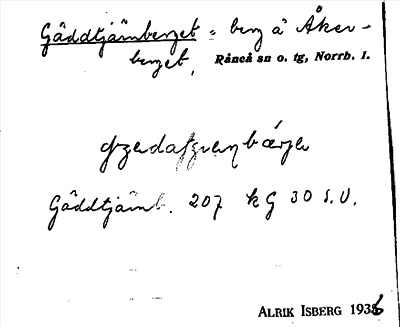 Gäddtjärnberget = berg å Åker-
berget, Råneå sn o. tg, Norrb. l.
Gäddtjärnb. 207 kG 30 S.V.
ALRIK ISBERG 1936